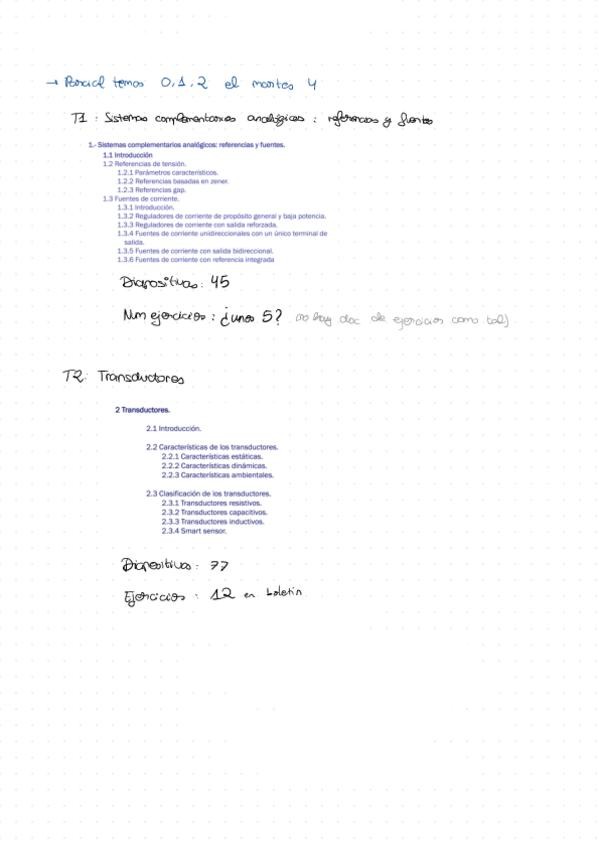 → Parcial temas 0,1,2 el martes 4
T1 : Sistemas complementarios analógicos : referencias y fuentes
1.- Sistemas complementarios analógicos: referencias y fuentes.
1.1 Introducción
1.2 Referencias de tensión.
1.2.1 Parámetros característicos.
1.2.2 Referencias basadas en zener.
1.2.3 Referencias gap.
1.3 Fuentes de corriente.
1.3.1 Introducción.
1.3.2 Reguladores de corriente de propósito general y baja potencia.
1.3.3 Reguladores de corriente con salida reforzada.
1.3.4 Fuentes de corriente unidireccionales con un único terminal de
salida.
1.3.5 Fuentes de corriente con salida bidireccional.
1.3.6 Fuentes de corriente con referencia integrada
Diapositivas: 45
Num ejercicios : ¿unos 5? (no hay doc de ejercicios como tal)
T2: Transductores
2 Transductores.
2.1 Introducción.
2.2 Características de los transductores.
2.2.1 Características estáticas.
2.2.2 Características dinámicas.
2.2.3 Características ambientales.
2.3 Clasificación de los transductores.
2.3.1 Transductores resistivos.
2.3.2 Transductores capacitivos.
2.3.3 Transductores inductivos.
2.3.4 Smart sensor.
Diapositivas: 77
Ejercicios : 12 en boletín